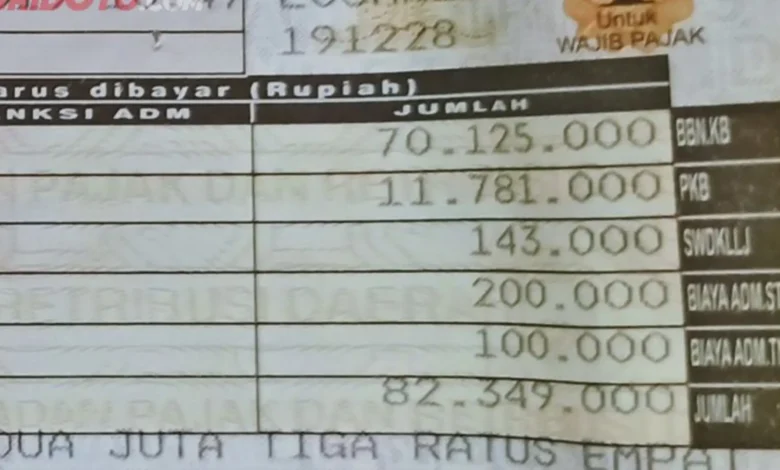 191228
Untuk
WAJIB PAJAK
arus dibayar (Rupiah)
NKSI ADM JUMLAH
70.125.000 BBN.KB
11.781.000 PKB
143.000 SWDKLLJ
200.000 BIAYA ADM.ST
100.000 BIAYA ADM.TN
82.349.000 JUMLAH
DUA JUTA TIGA RATUS EMPAT